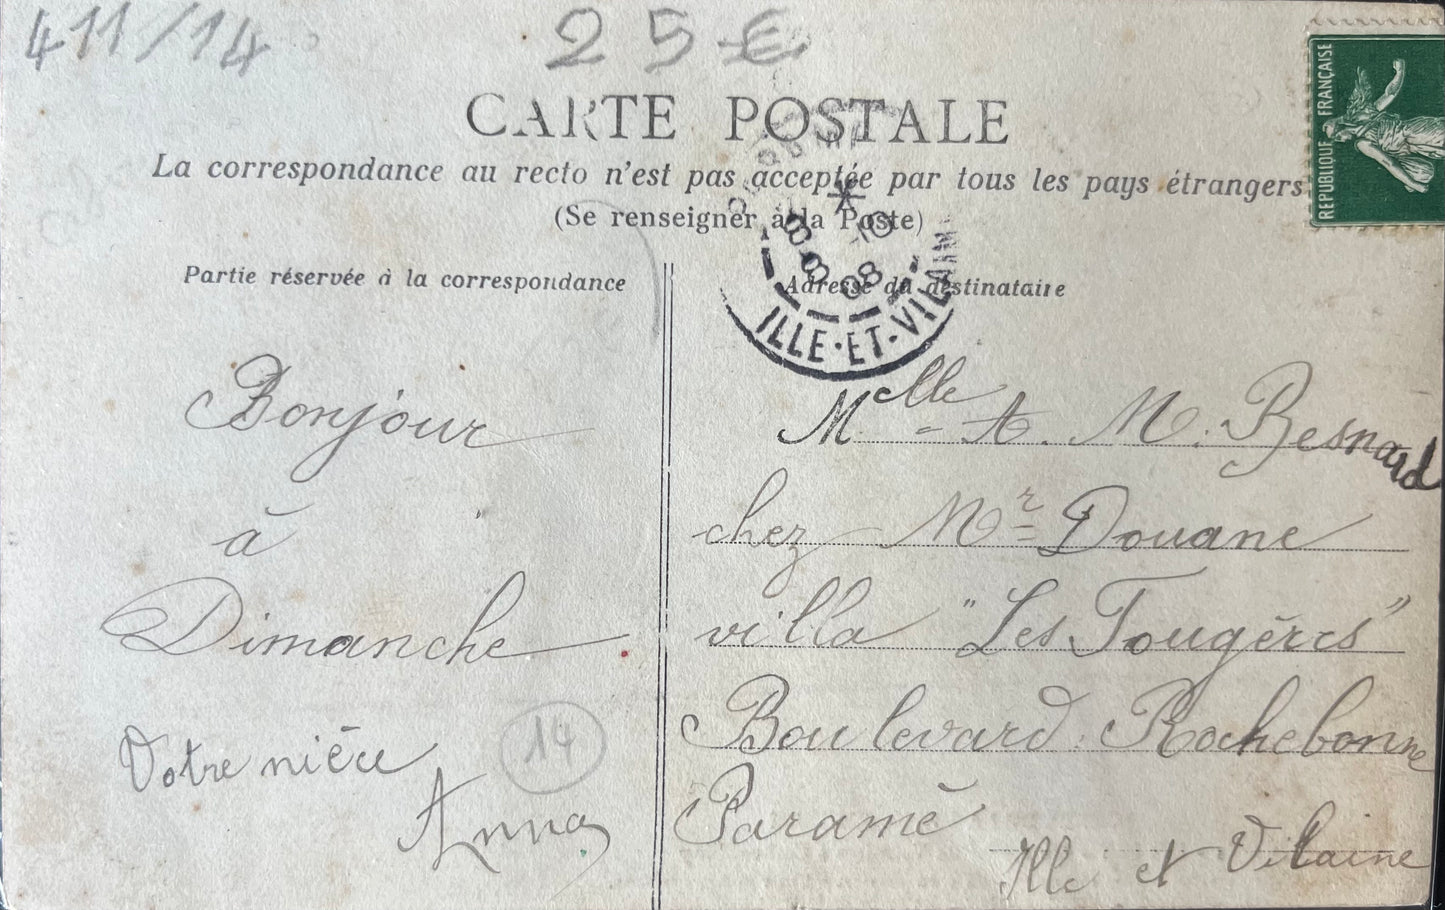 411/14
25 €
CARTE POSTALE
La correspondance au recto n'est pas acceptée par tous les pays étrangers
(Se renseigner à la Poste)
REPUBLIQUE FRANÇAISE
Partie réservée à la correspondance
Adresse du destinataire
8-8
08
ILLE-ET-VILAINE
Bonjour
à
Dimanche
Votre nièce
Anna
14
Melle A. M. Besnard
chez Mr Douane
villa "Les Fougères"
Boulevard Rochebonne
Paramé
Ille et Vilaine